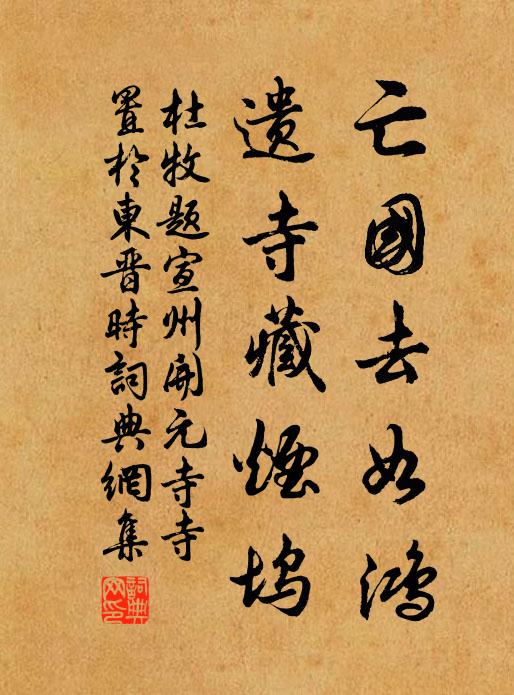 亡國去如鴻
遺寺藏煙塢
杜牧題宣州開元寺寺
置於東晋時詞典網集
詞典
网印